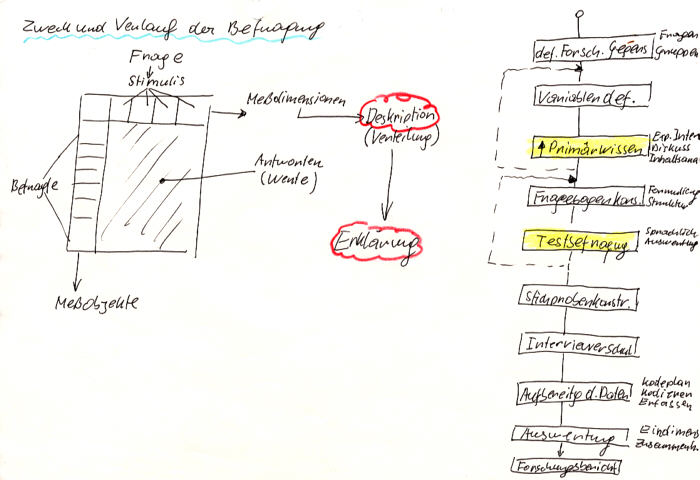 Zweck und Verlauf der Befragung
Frage
Stimulis
Meßdimensionen
Deskription
(Verteilung)
Antworten
(Werte)
Befragte
Erklärung
Meßobjekte
def. Forsch. Gegens
Fragen
Gruppen
Variablen def.
↑ Primärwissen
Exp. Inter
Diskuss
Inhaltsana
Fragebogenkons.
Formulierung
Struktur
Testbefragung
Sprachlich
Auswertung
Stichprobenkonstr.
Interviewerschul
Aufbereitg d. Daten
Kodeplan
Kodieren
Erfassen
Auswertung
Eindimens
Zusammenh.
Forschungsbericht